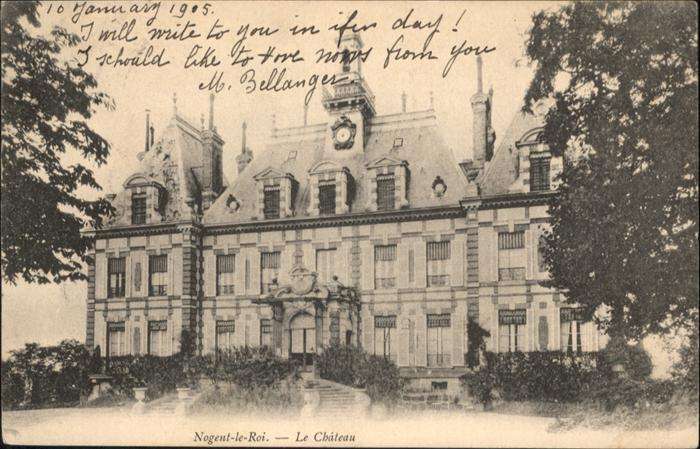 10 January 1905.
I will write to you in ifew day!
I schould like to have news from you
M. Bellanger
Nogent-le-Roi. — Le Château